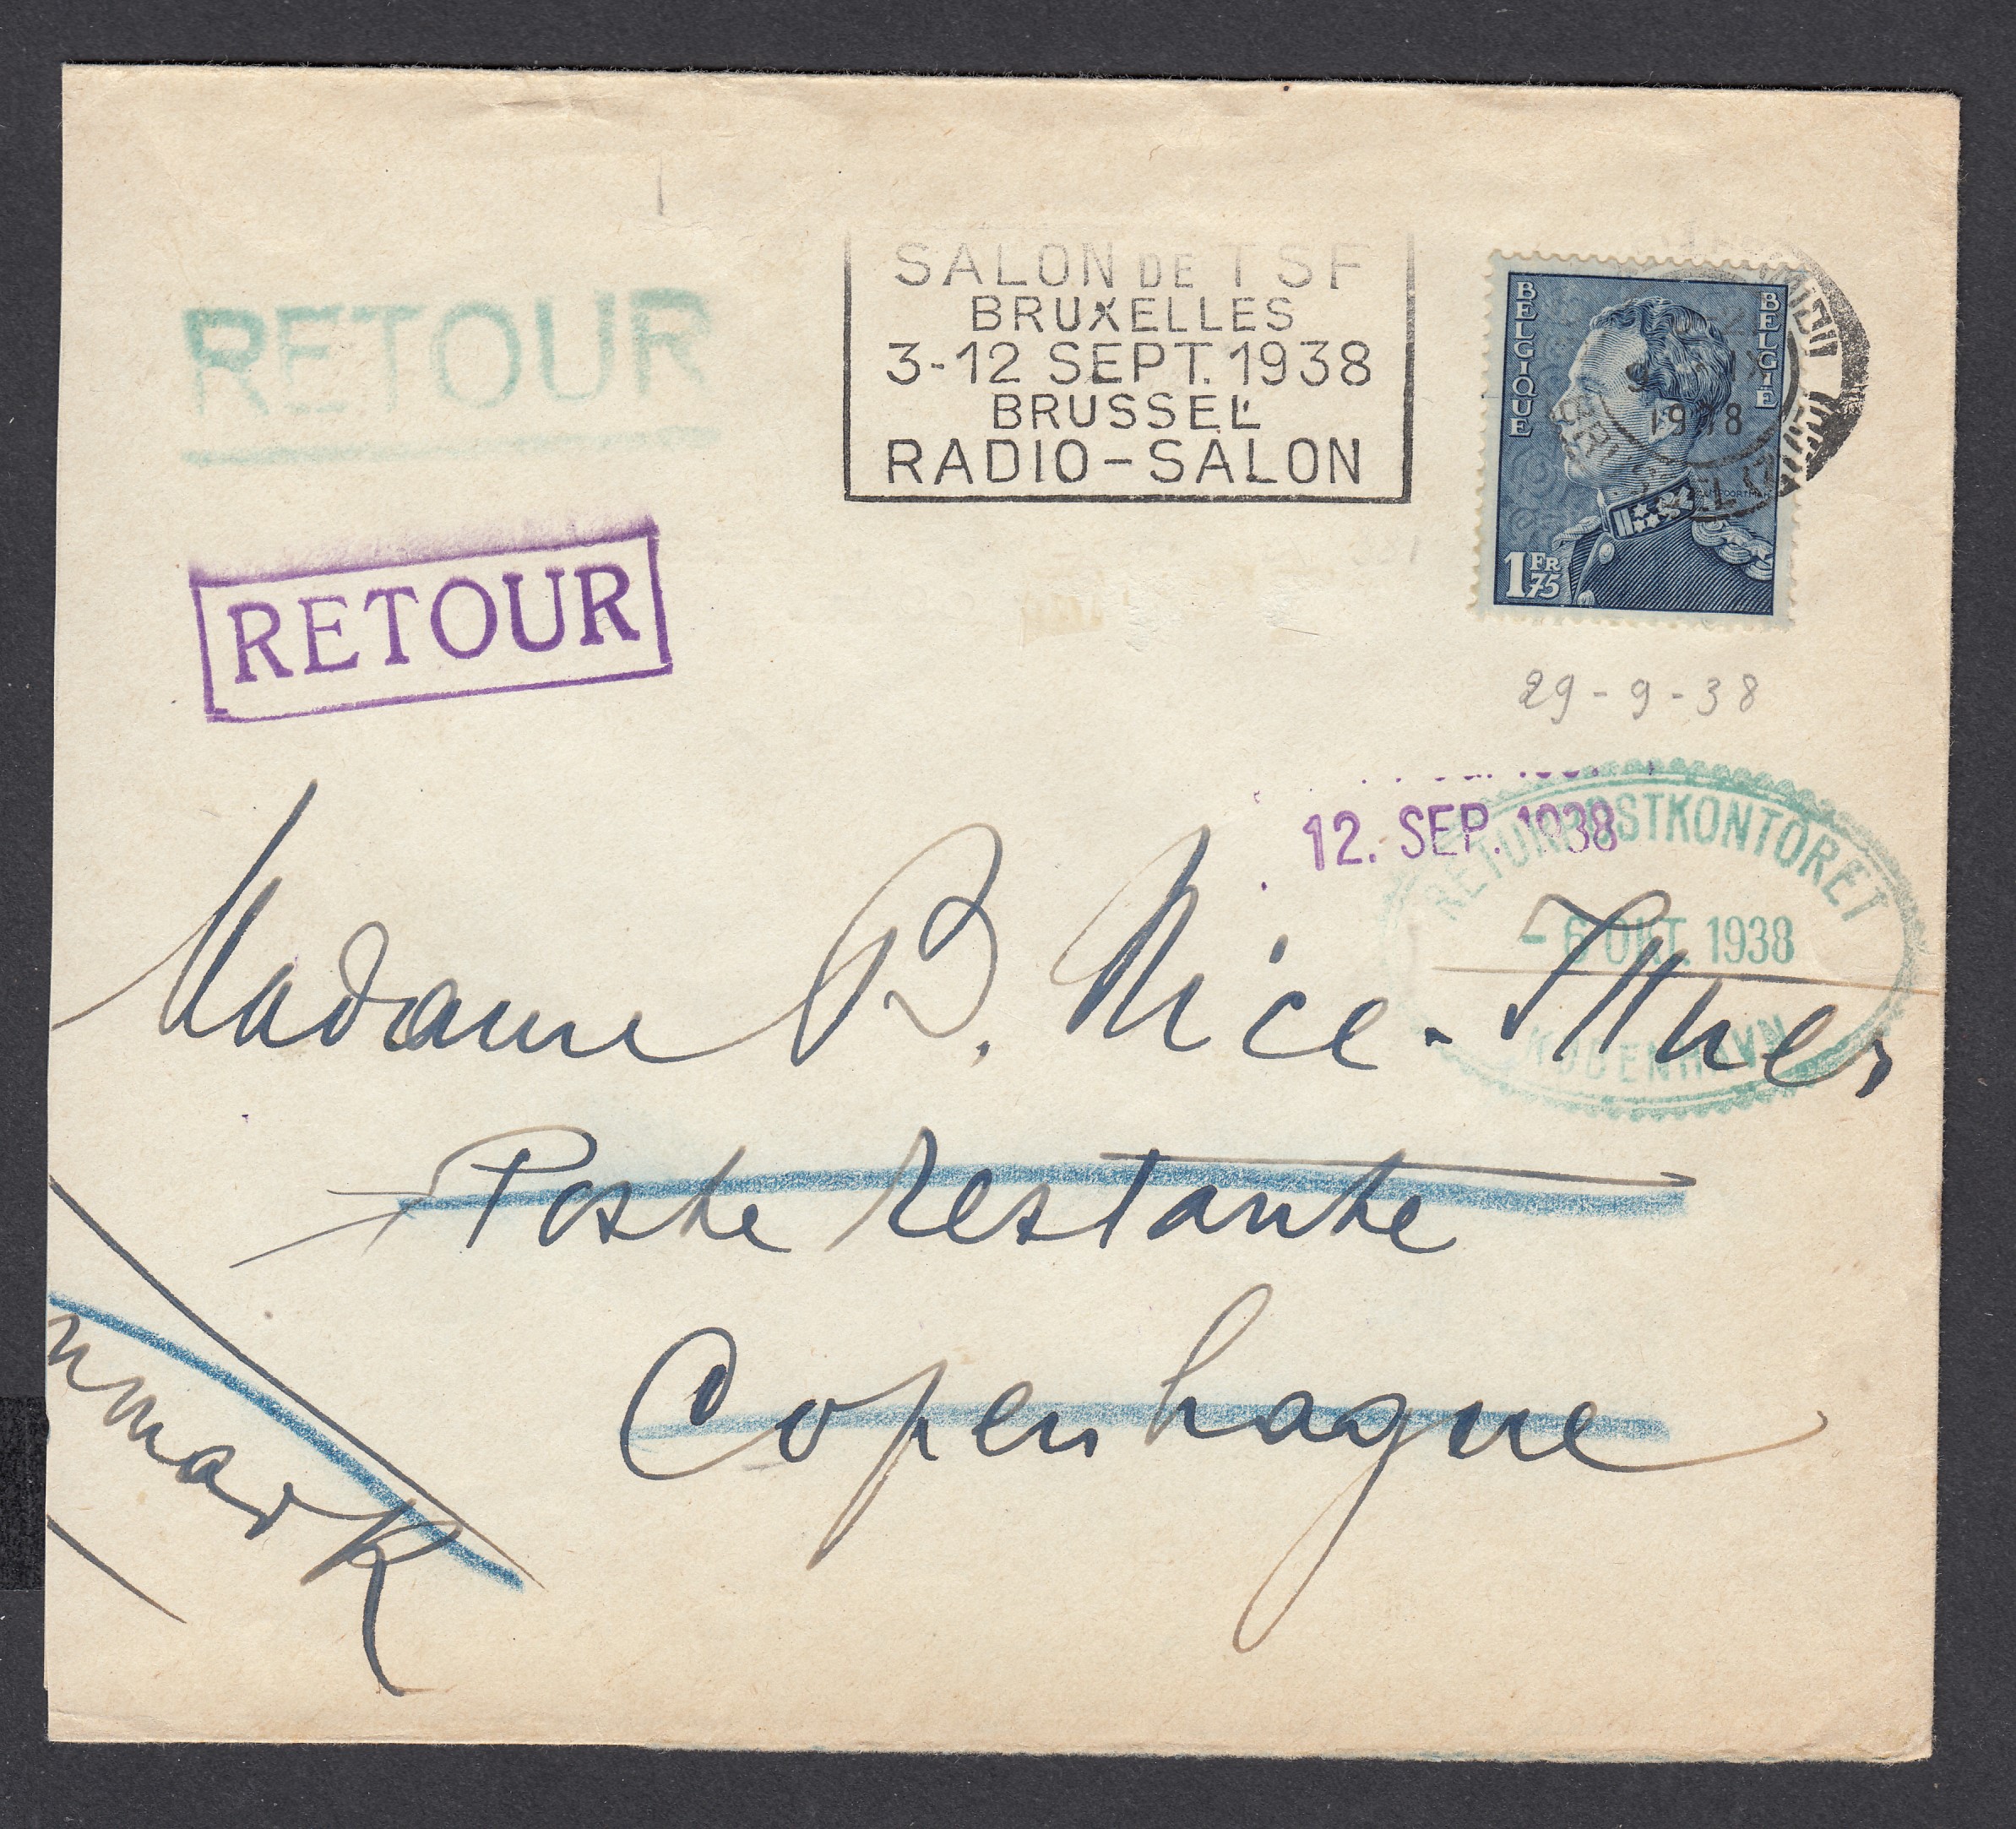 RETOUR
SALON DE TSF
BRUXELLES
3-12 SEPT. 1938
BRUSSEL
RADIO-SALON
BELGIQUE
BELGIË
1938
1 FR 75
RETOUR
29-9-38
12. SEP. 1938
RETURPOSTKONTORET
- 6 OKT. 1938
KØBENHAVN
Madame B. Nice-
Poste restante
Copenhague
nmark